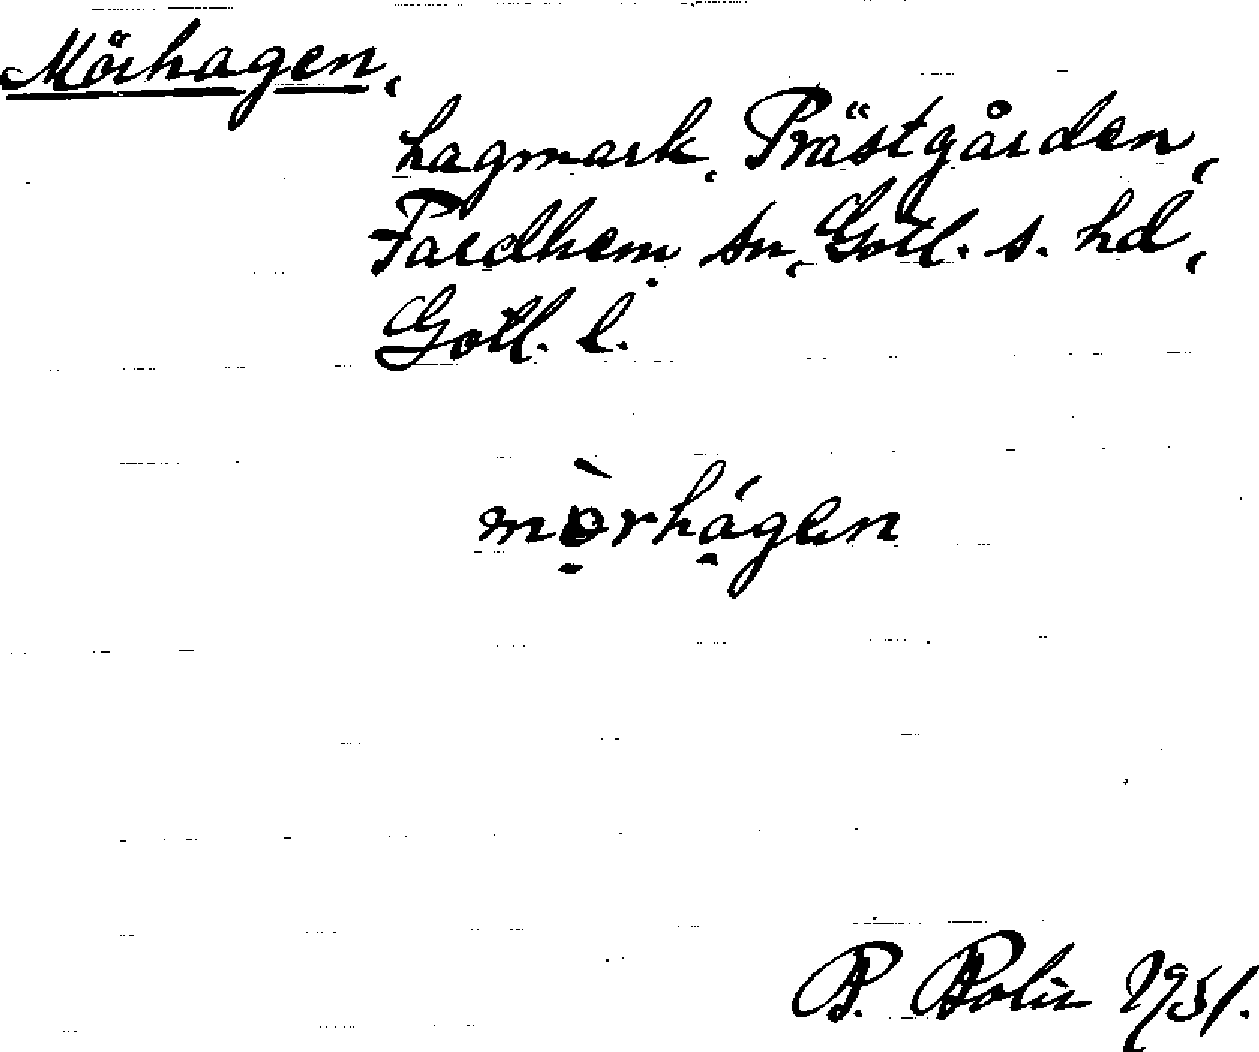 Mörhagen,
hagmark, Prästgården,
Fardhem sn, Gotl. s. hd,
Gotl. l.
mò̤rhá̤gen
P. Bolin 1951.